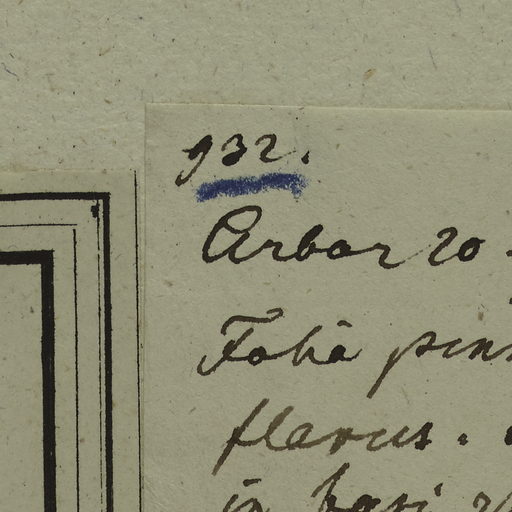 932.
Arbor 20
Folia pinn
flavus.
in